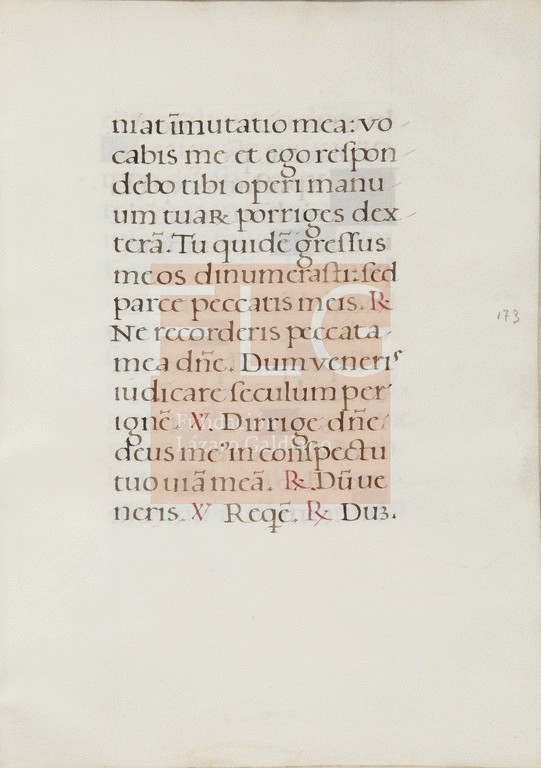 niat īmutatio mea: vo
cabis me et ego reſpon
debo tibi operi manu
um tuaꝝ porriges dex
terā. Tu quidē greſſus
meos dinumeraſti: ſed
parce peccatis meis. ℟
Ne recorderis peccata
mea dñe. Dum veneris
iudicare ſeculum per
ignē. ℣. Dirrige dñe
deus me⁹ in conſpectu
tuo uiā meā. ℟. Dū ue
neris. ℣ Reqē. ℟ Duʒ.
173
FLG
Fundación
Lázaro Galdiano